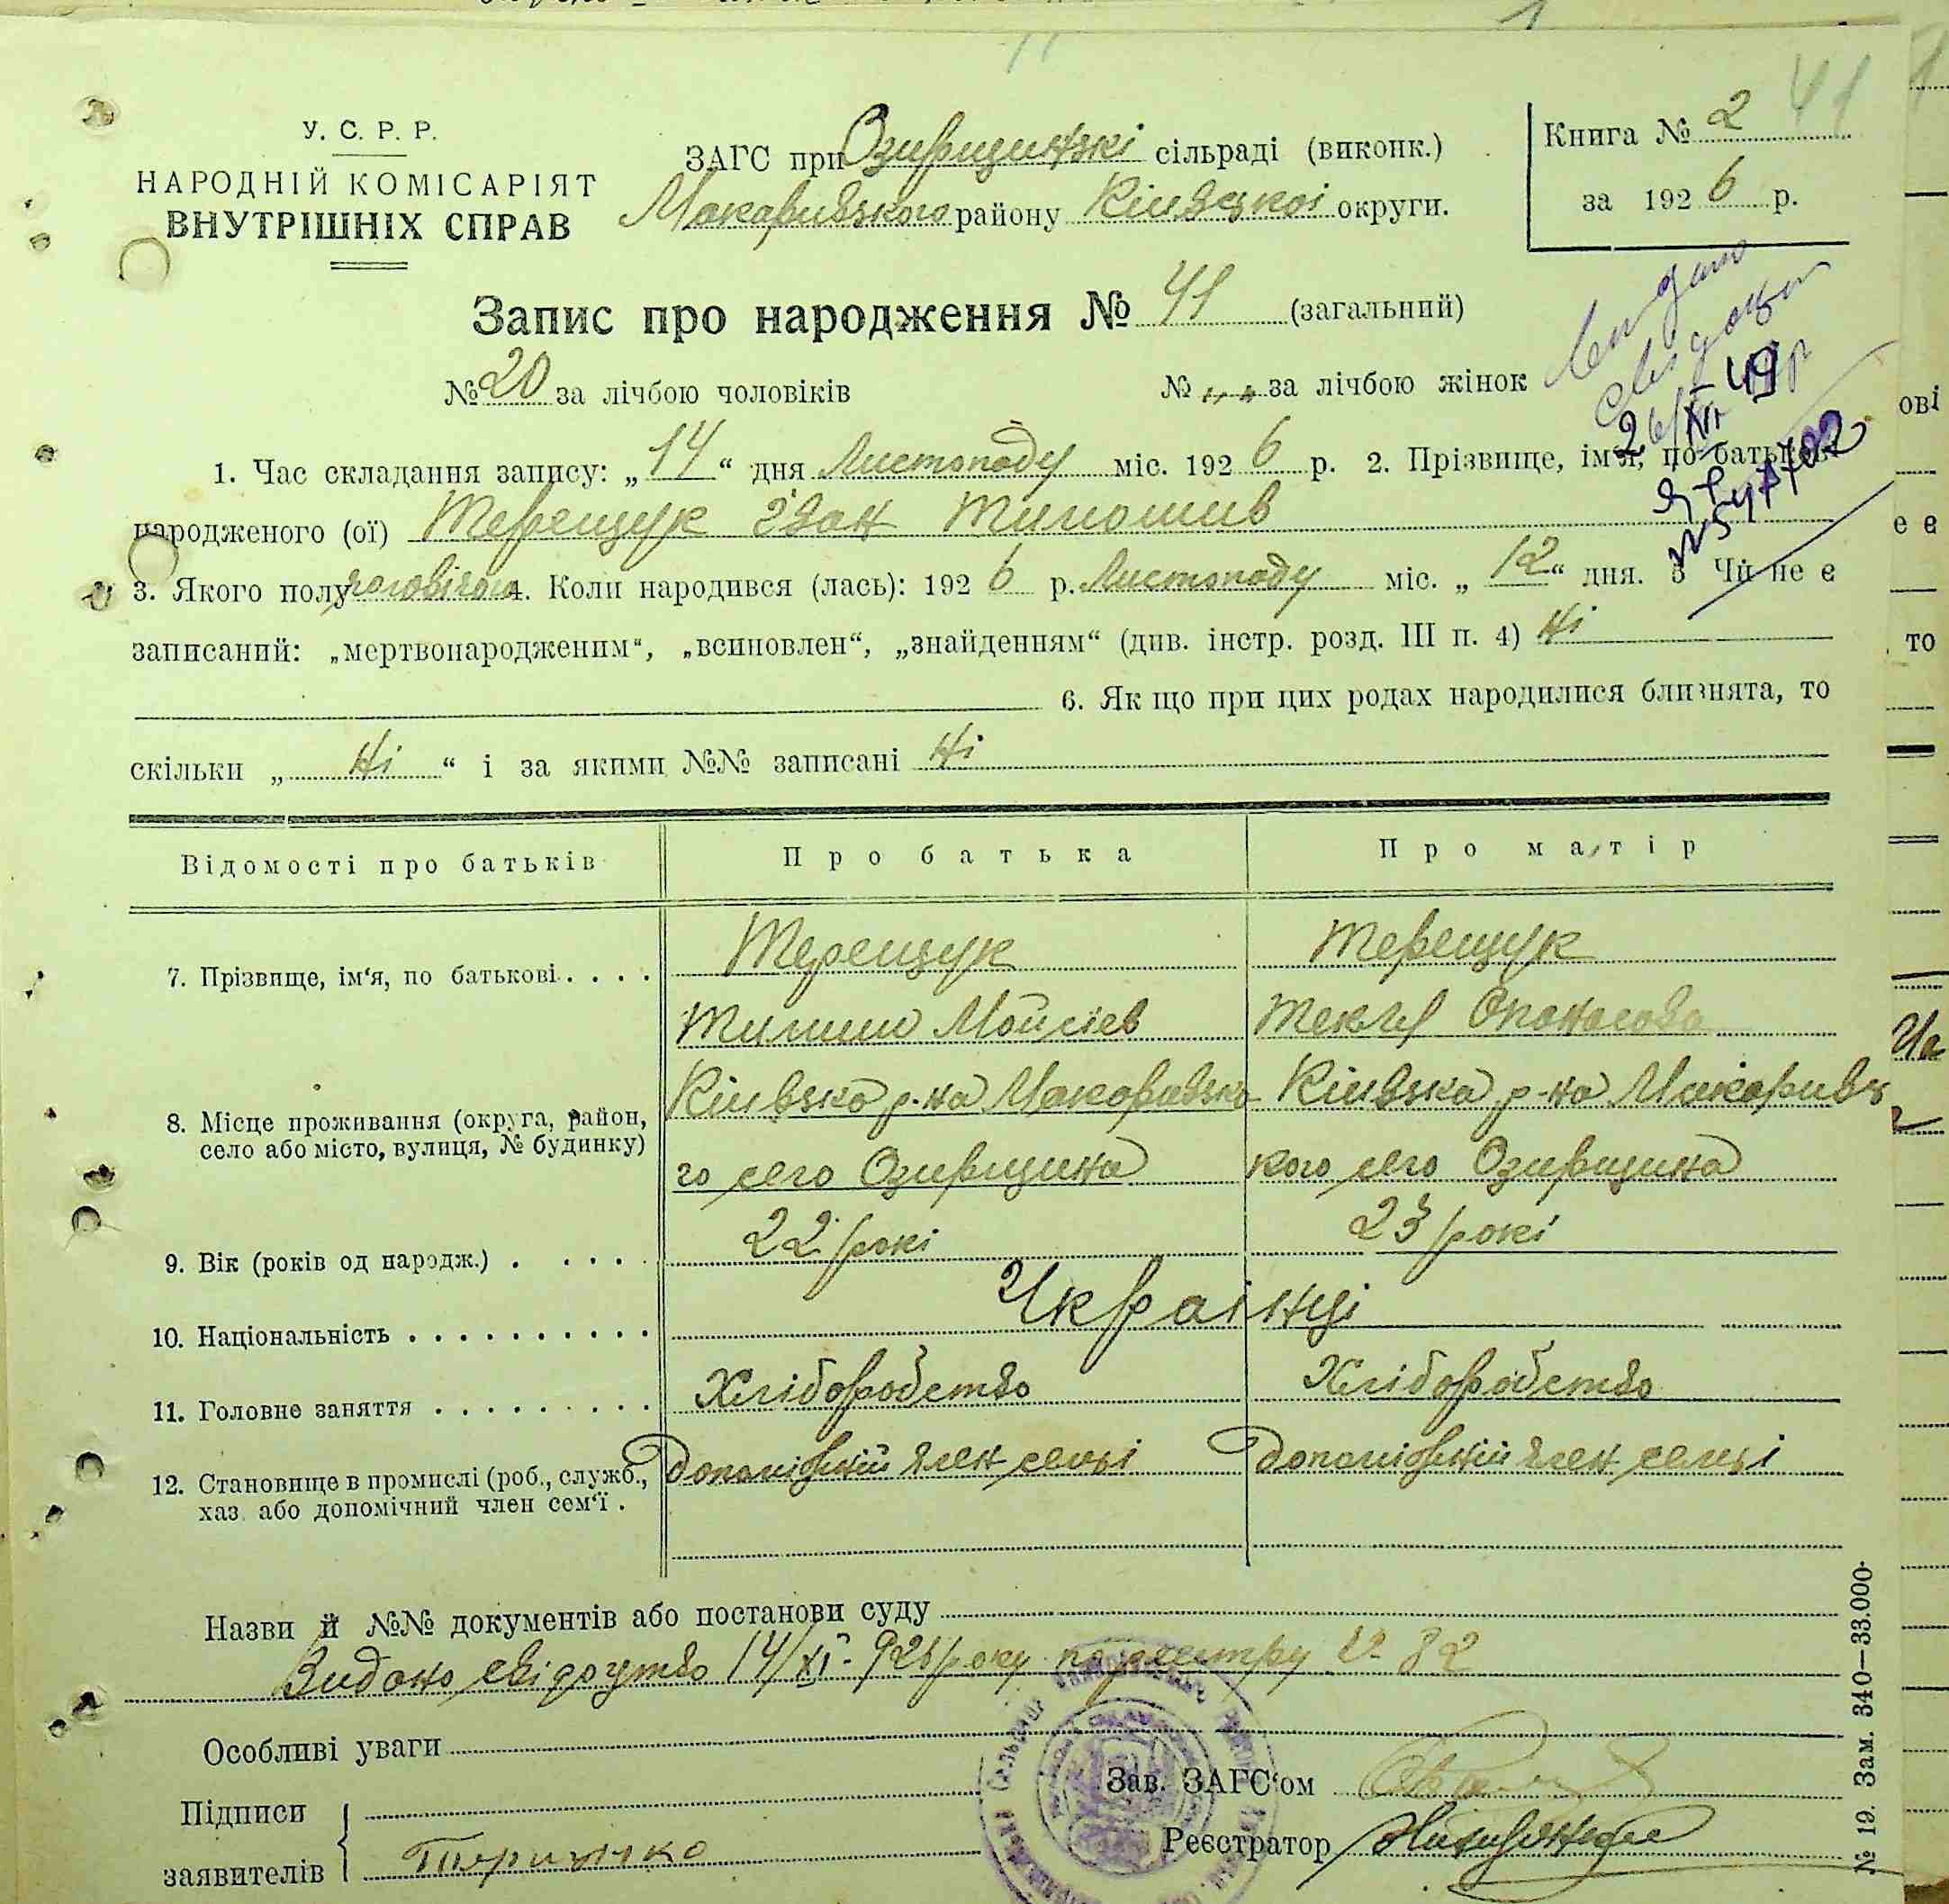 У. С. Р. Р.
НАРОДНІЙ КОМІСАРІЯТ
ВНУТРІШНІХ СПРАВ
ЗАГС при Озирщинські сільраді (виконк.)
Макарівзкого району Київзкоі округи.
Книга № 2 41
за 1926 р.
Запис про народження № 41 (загальний)
№ 20 за лічбою чоловіків № за лічбою жінок
26/XII-49р
1. Час складання запису: „14“ дня Листопаду міс. 1926 р. 2. Прізвище, ім'я, по батькові
народженого (ої) Терещук Іван Тимошив
3. Якого полу чоловічого 4. Коли народився (лась): 1926 р. Листопаду міс. „12“ дня. 5 Чи не є
записаний: „мертвонародженим“, „всиновлен“, „знайденням“ (див. інстр. розд. III п. 4) Ні
6. Як що при цих родах народилися близнята, то
скільки „Ні“ і за якими №№ записані Ні
Відомості про батьків Про батька Про матір
7. Прізвище, ім'я, по батькові.... Терещук Терещук
Тимиш Мойсіев Текля Опонасова
8. Місце проживання (округа, район, Київзка р-на Макаривзко Київзка р-на Макаривз
село або місто, вулиця, № будинку) го село Озирщина кого село Озирщина
9. Вік (років од народж.) . . . . . 22 рокі 23 рокі
10. Національність .......... Українці
11. Головне заняття ......... Хліборобство Хліборобство
12. Становище в промислі (роб., служб., Допоміжний член семьі Допоміжний член семьі
хаз. або допомічний член сем'ї .
Назви й №№ документів або постанови суду
Видано свідоцтво 14/XI-926 року по реєстру № 82
Особливі уваги
Підписи
заявителів
Зав. ЗАГС'ом
Реєстратор
№ 19. Зам. 340—33.000.
ові
е є
то